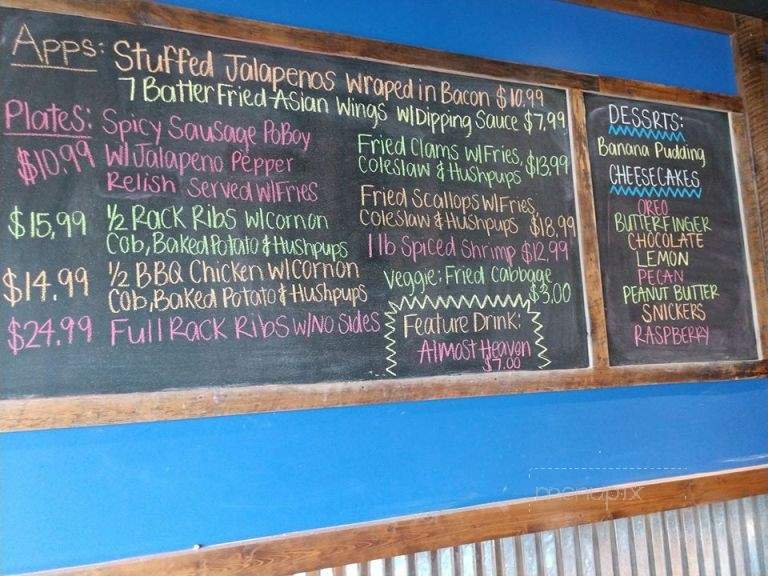 Apps: Stuffed Jalapenos Wraped in Bacon $10.99
7 Batter Fried Asian Wings W/Dipping Sauce $7.99
Plates: Spicy Sausage PoBoy
$10.99 W/Jalapeno Pepper
Relish Served W/Fries
$15.99 1/2 Rack Ribs W/Cornon
Cob, Baked Potato & Hushpups
$14.99 1/2 BBQ Chicken W/Cornon
Cob, Baked Potato & Hushpups
$24.99 Full Rack Ribs W/No Sides
Fried Clams W/Fries,
Coleslaw & Hushpups $13.99
Fried Scallops W/Fries,
Coleslaw & Hushpups $18.99
1 lb Spiced Shrimp $12.99
Veggie: Fried Cabbage
$3.00
Feature Drink:
Almost Heaven
$7.00
DESSRTS:
Banana Pudding
CHEESECAKES
OREO
BUTTERFINGER
CHOCOLATE
LEMON
PECAN
PEANUT BUTTER
SNICKERS
RASPBERRY
menupix